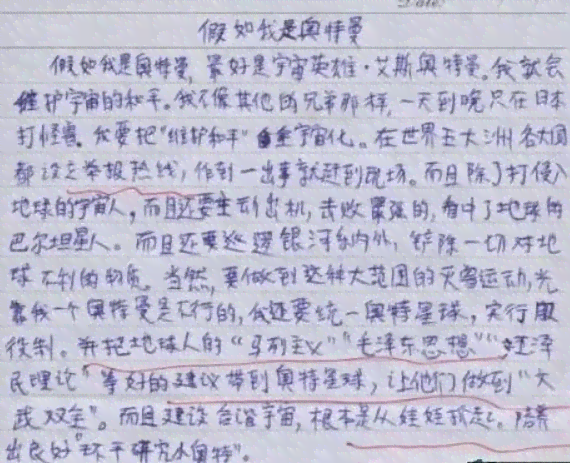 Date:
假如我是奥特曼
假如我是奥特曼,最好是宇宙英雄·艾斯奥特曼。我就会
维护宇宙的和平。我不像其他的兄弟那样,一天到晚只在日本
打怪兽。我要把“维护和平”全宇宙化。在世界五大洲各大国
都设立举报热线,作到一出事就赶到现场。而且除了打侵入
地球的宇宙人,而且还要主动出机,击败最强的,看中了地球的
巴尔坦星人。而且还要巡逻银河系内外,铲除一切对地
球不利的物质。当然,要做到这种大范围的灭害运动,光
靠我一个奥特曼是不行的,我还要统一奥特星球,实行服
役制。并把地球人的“马列主义”“毛泽东思想”“江泽
民理论”等好的建议带到奥特星球,让他们做到“文
武双全”。而且建设合谐宇宙,根本是从娃娃抓起。培养
出良好“环干研究小奥特”。